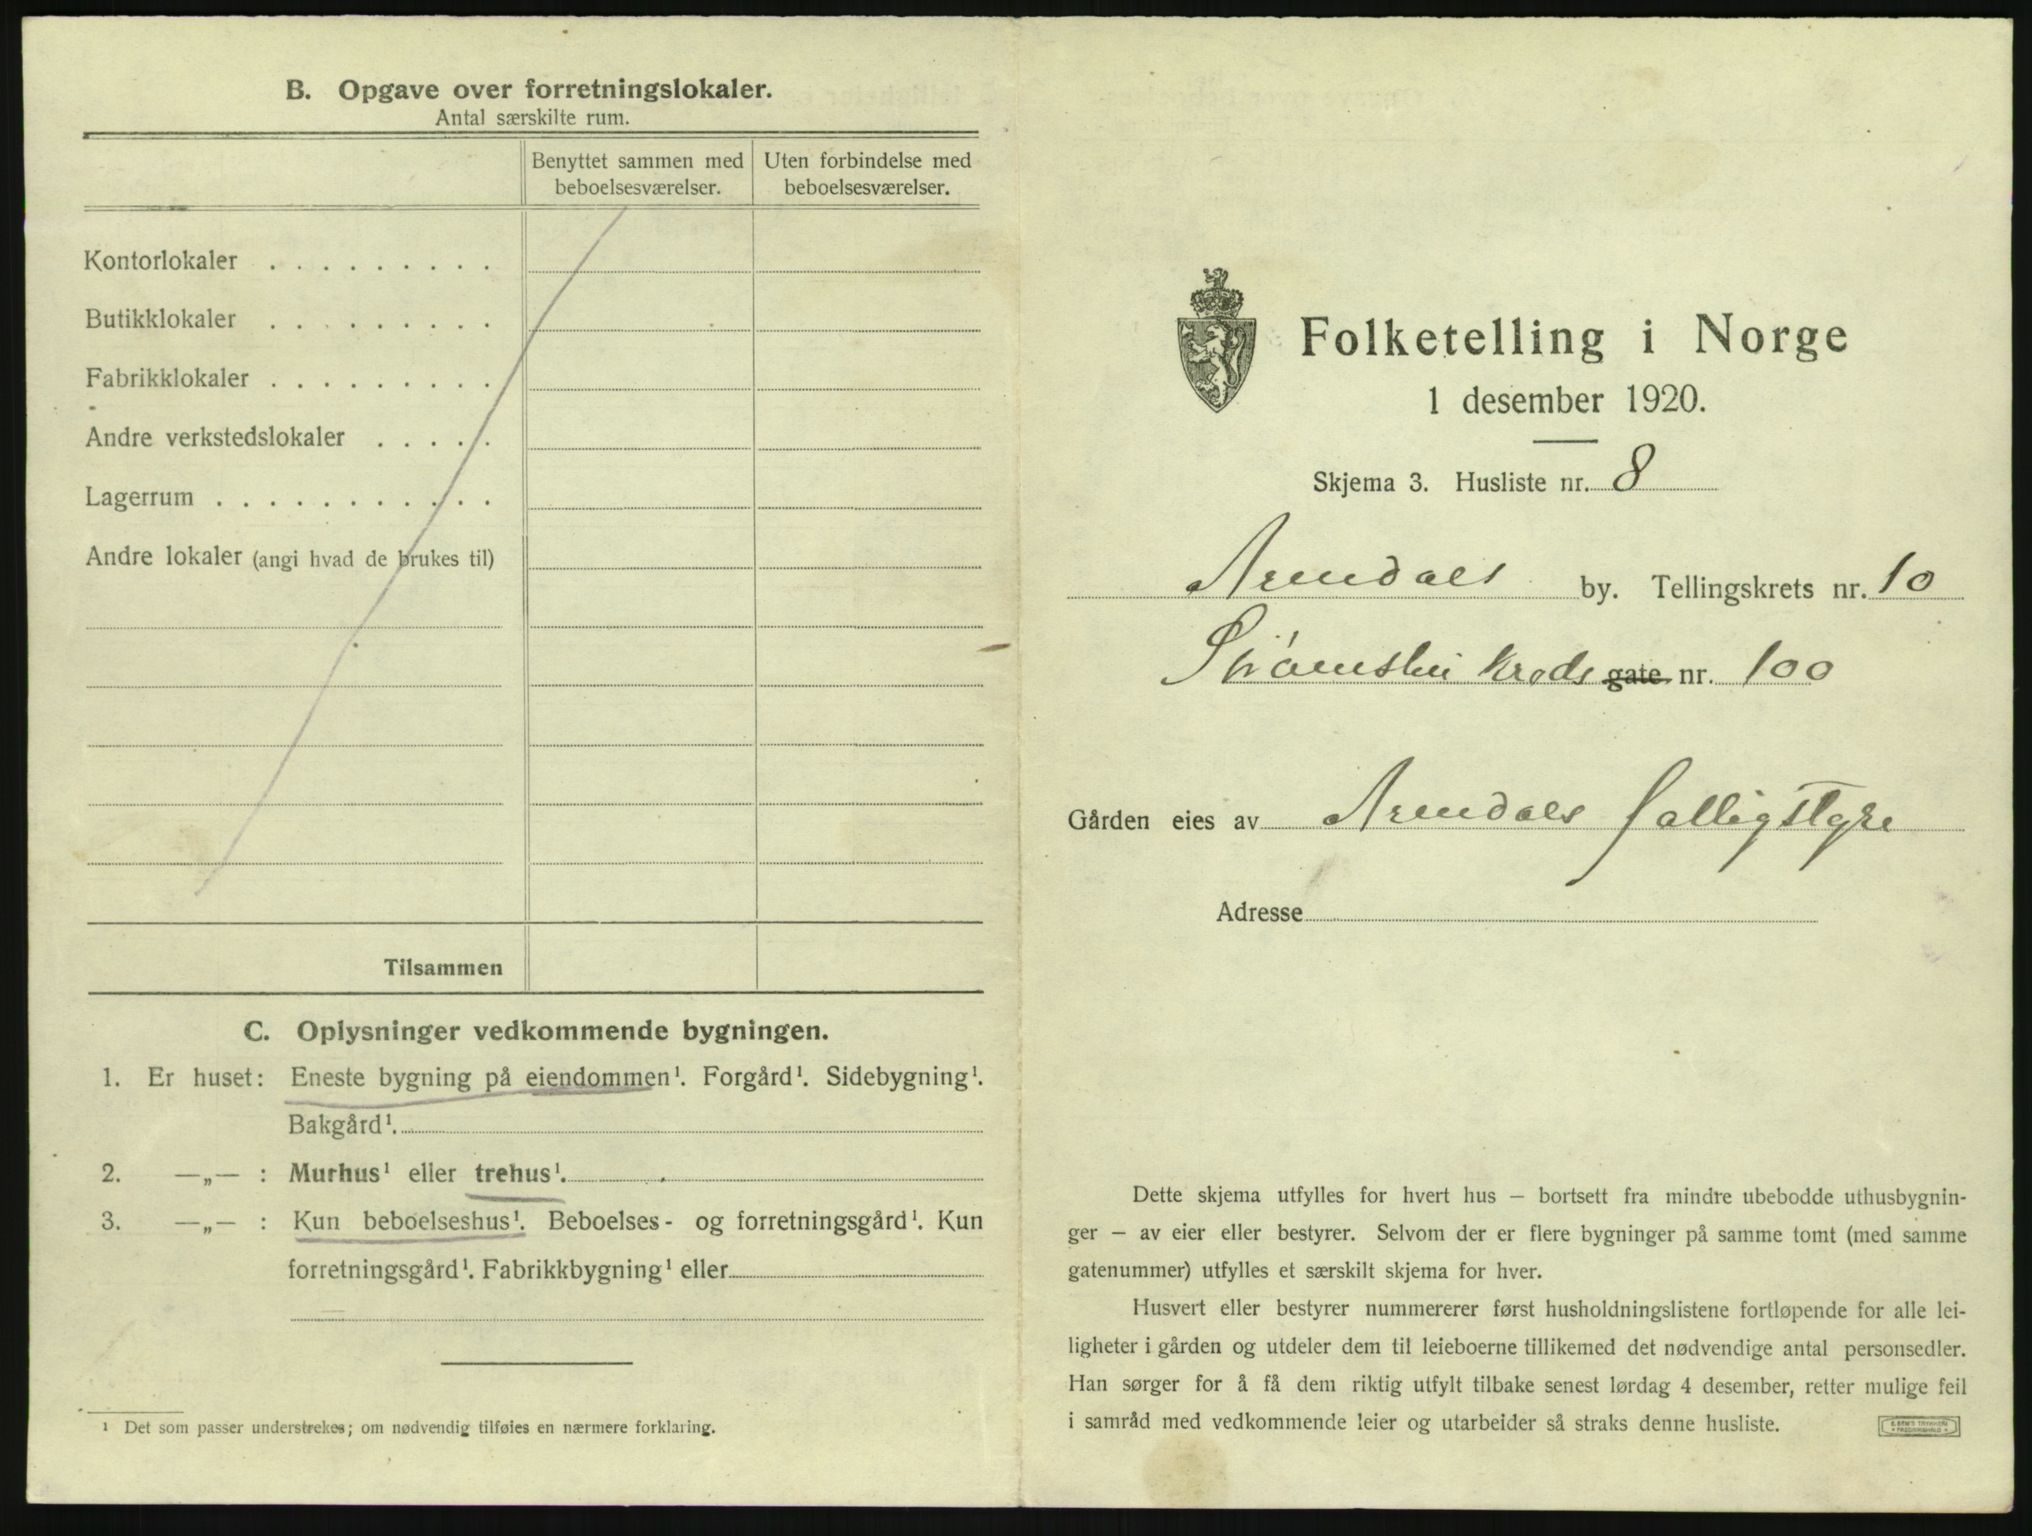 B. Opgave over forretningslokaler.
Antal særskilte rum.
Benyttet sammen med beboelsesværelser.
Uten forbindelse med beboelsesværelser.
Kontorlokaler . . . . . . . . .
Butikklokaler . . . . . . . . .
Fabrikklokaler . . . . . . . . .
Andre verkstedslokaler . . . . .
Lagerrum . . . . . . . . . . . .
Andre lokaler (angi hvad de brukes til)
Tilsammen
C. Oplysninger vedkommende bygningen.
1. Er huset: Eneste bygning på eiendommen¹. Forgård¹. Sidebygning¹.
Bakgård¹.
2. —„— : Murhus¹ eller trehus¹.
3. —„— : Kun beboelseshus¹. Beboelses- og forretningsgård¹. Kun
forretningsgård¹. Fabrikkbygning¹ eller
¹ Det som passer understrekes; om nødvendig tilføies en nærmere forklaring.
Folketelling i Norge
1 desember 1920.
Skjema 3. Husliste nr. 8
Arendals by. Tellingskrets nr. 10
gate nr. 100
Gården eies av Arendals fattigstyre
Adresse
Dette skjema utfylles for hvert hus – bortsett fra mindre ubebodde uthusbygnin-
ger – av eier eller bestyrer. Selvom der er flere bygninger på samme tomt (med samme
gatenummer) utfylles et særskilt skjema for hver.
Husvert eller bestyrer nummererer først husholdningslistene fortløpende for alle lei-
ligheter i gården og utdeler dem til leieboerne tillikemed det nødvendige antal personsedler.
Han sørger for å få dem riktig utfylt tilbake senest lørdag 4 desember, retter mulige feil
i samråd med vedkommende leier og utarbeider så straks denne husliste.